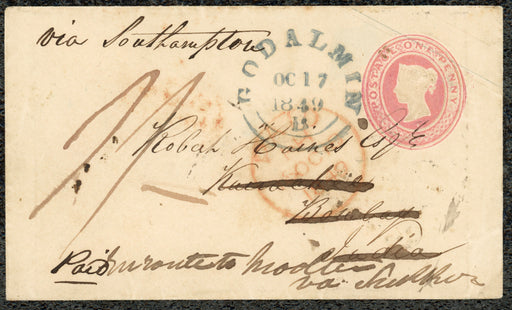 via Southampton
GODALMIN
OC 17
1849
B
POSTAGE ONE PENNY
Robert Haines Esqr
Kurrachee
Bombay
India
Paid en route to Mooltan
via Sukkur